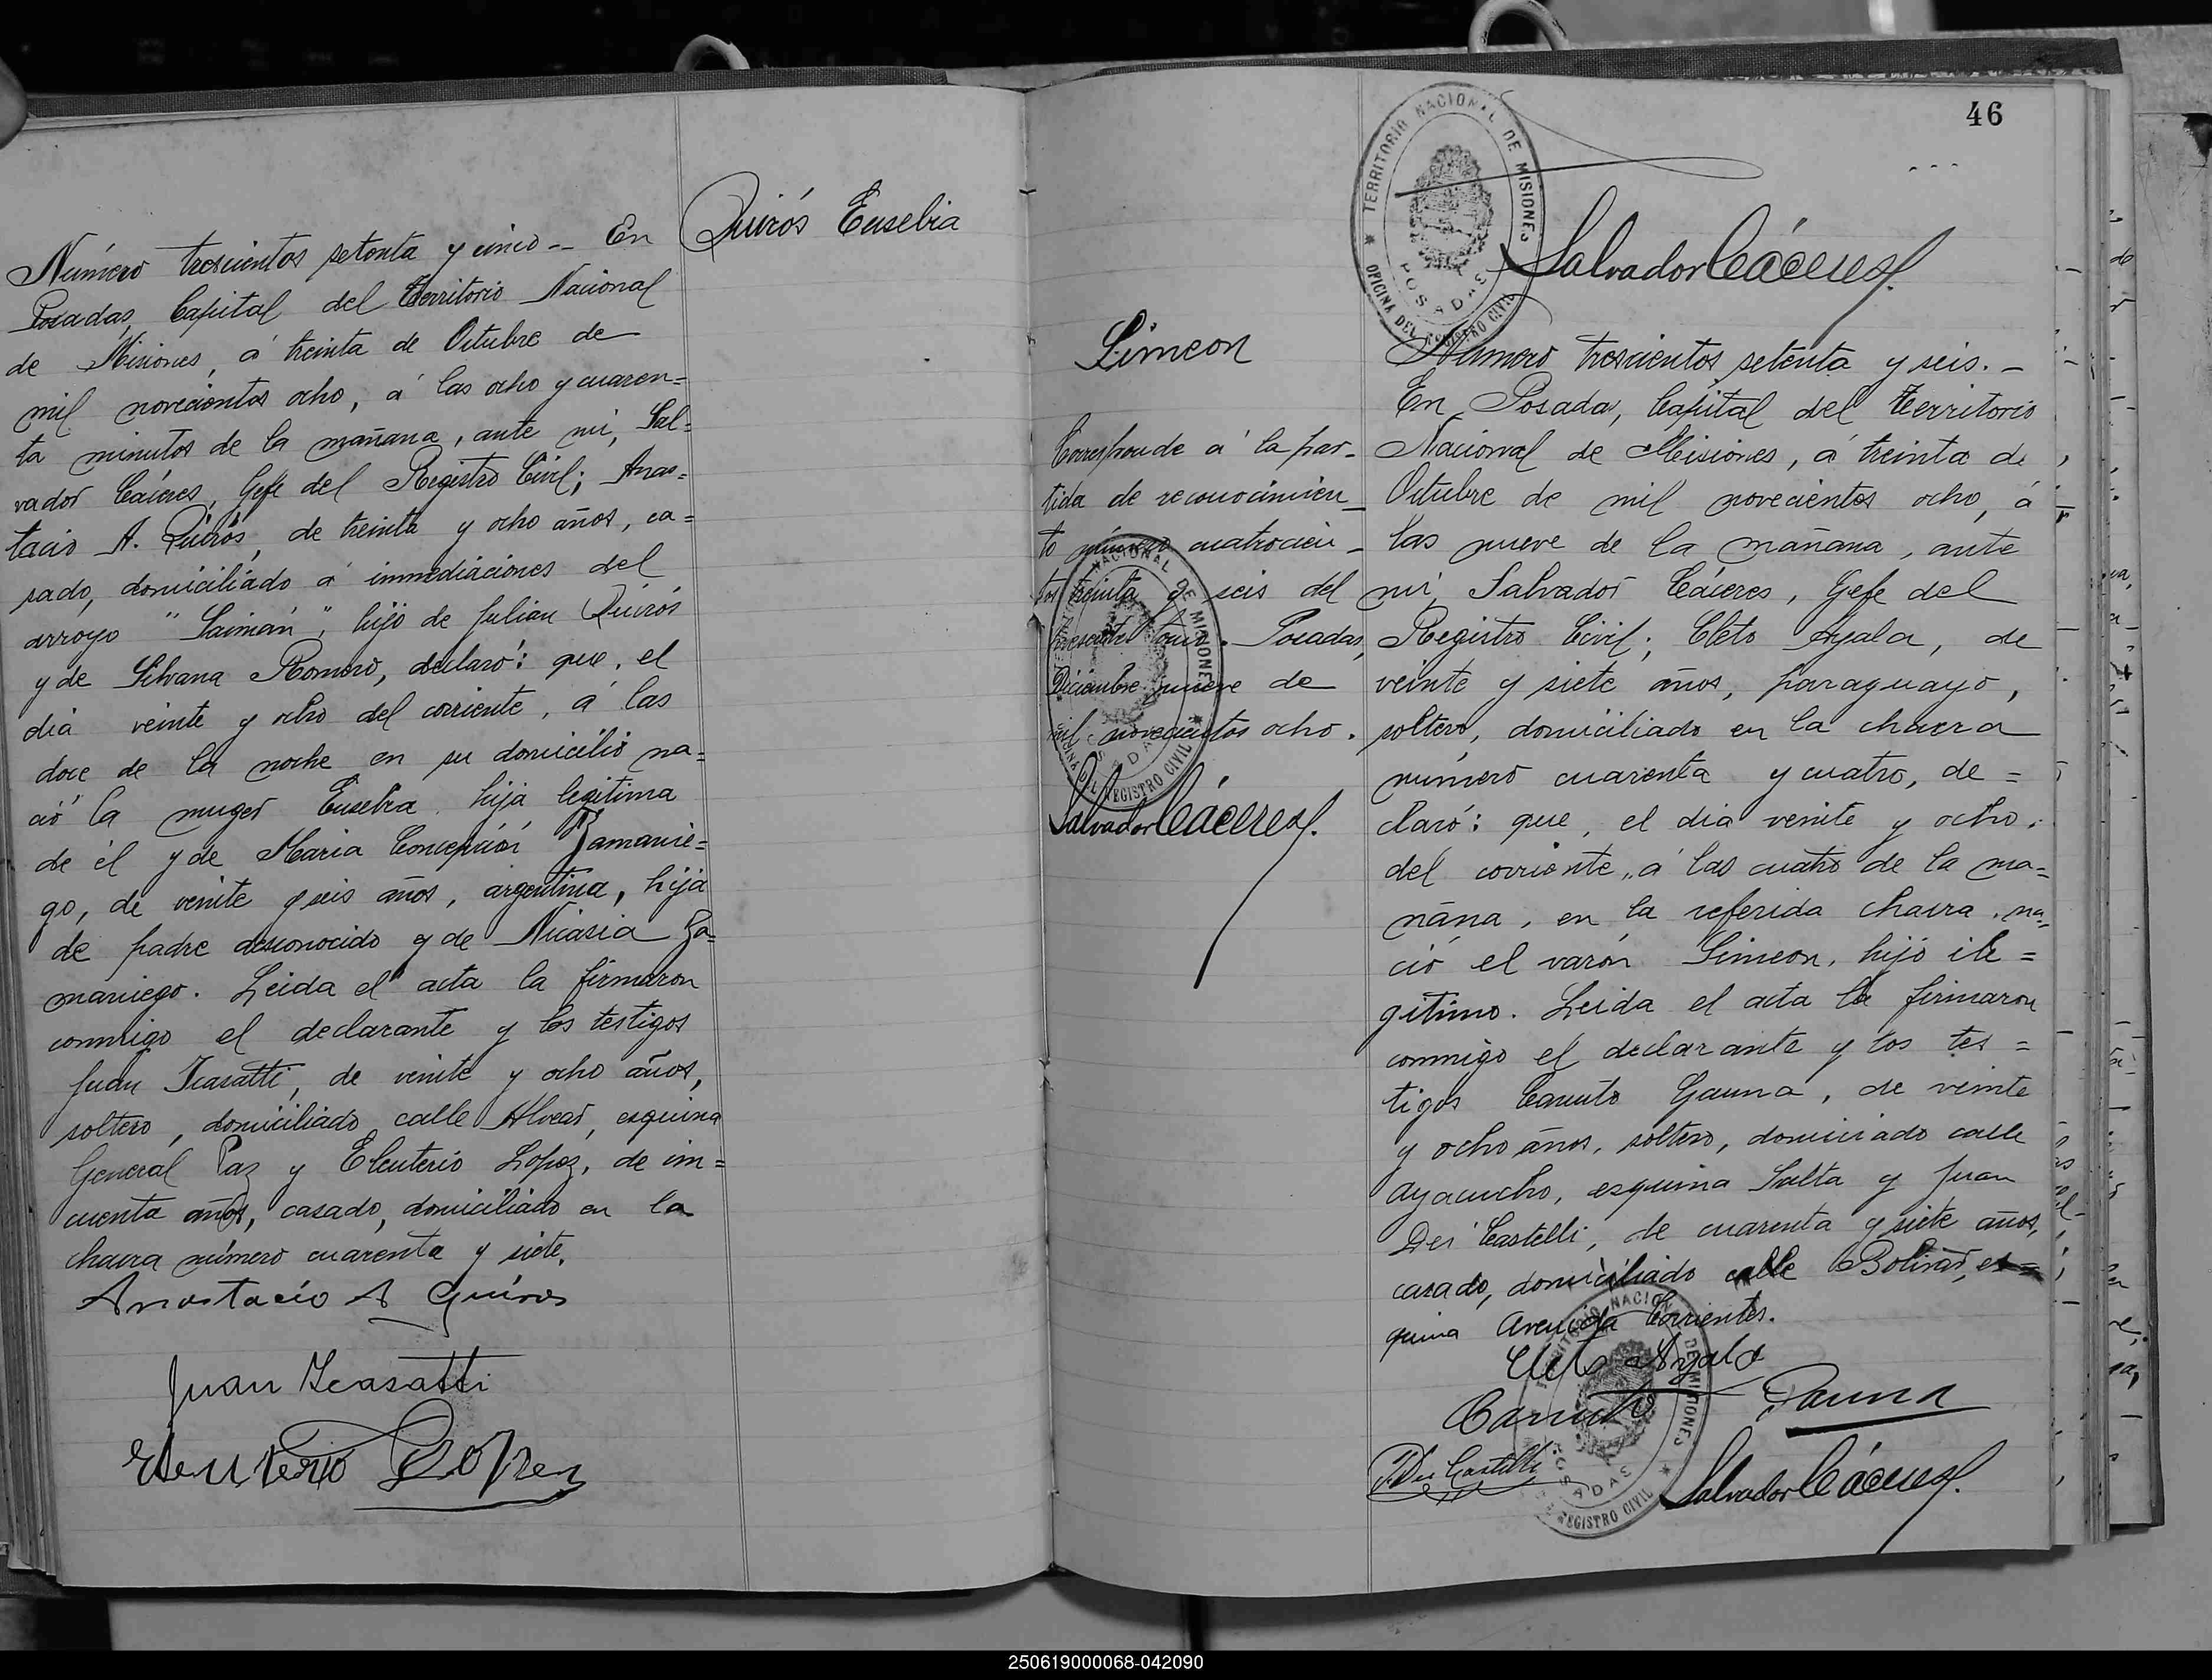 Quirós Eusebia
Número trescientos setenta y cinco -- En
Posadas, Capital del Territorio Nacional
de Misiones, á treinta de Octubre de
mil novecientos ocho, á las ocho y cuaren=
ta minutos de la mañana, ante mi, Sal=
vador Cáceres, Gefe del Registro Civil; Anas=
tacio A. Quirós, de treinta y ocho años, ca=
sado, domiciliado á immediaciones del
arroyo "Saimán", hijo de Julian Quirós
y de Silvana Romero, declaró: que, el
dia veinte y ocho del corriente, á las
doce de la noche en su domicilio na=
ció la muger Eusebia, hija legitima
de él y de Maria Concepción Zamanie=
go, de veinte y seis años, argentina, hija
de padre desconocido y de Nicasia Za=
maniego. Leida el acta la firmaron
conmigo el declarante y los testigos
Juan Icasatti, de veinte y ocho años,
soltero, domiciliado calle Alvear, esquina
General Paz y Eleuterio Lopez, de cin=
cuenta años, casado, domiciliado en la
chacra número cuarenta y siete.
Anastacio A Quiros
Juan Icasatti
Eleuterio Lopez
46
TERRITORIO NACIONAL DE MISIONES
POSADAS
OFICINA DEL REGISTRO CIVIL
Salvador Cáceres
Simeon
Corresponde á la par-
tida de reconocimien-
to número cuatrocien-
tos treinta y seis del
presente tomo. Posadas,
Diciembre nueve de
mil novecientos ocho.
Salvador Cáceres
Número trescientos setenta y seis. -
En Posadas, Capital del Territorio
Nacional de Misiones, á treinta de
Octubre de mil novecientos ocho, á
las nueve de la mañana, ante
mi, Salvador Cáceres, Gefe del
Registro Civil; Cleto Ayala, de
veinte y siete años, paraguayo,
soltero, domiciliado en la chacra
número cuarenta y cuatro, de=
claró: que, el dia veinte y ocho,
del corriente, á las cuatro de la ma=
ñana, en la referida chacra, na=
ció el varón Simeon, hijo ile=
gitimo. Leida el acta la firmaron
conmigo el declarante y los tes=
tigos Canuto Gauna, de veinte
y ocho años, soltero, domiciado calle
Ayacucho, esquina Salta y Juan
Dei Castelli, de cuarenta y siete años,
casado, domiciliado calle Bolivar, es=
quina Avenida Corrientes.
Cleto Ayala
Canuto Gauna
J. Dei Castelli
Salvador Cáceres
250619000068-042090